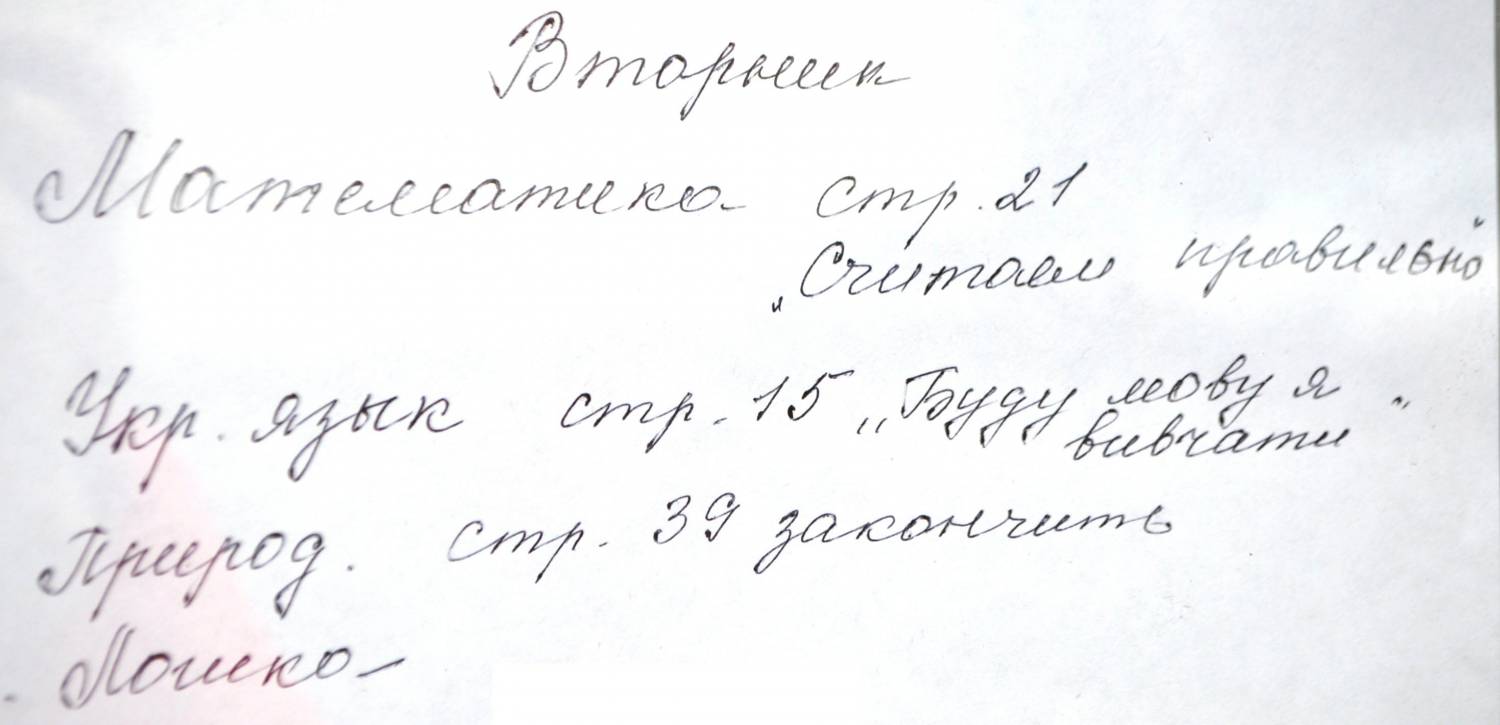 Вторник
Математика стр. 21
„Считаем правильно"
Укр. язык стр. 15 „Буду мову я
вивчати"
Природ. стр. 39 закончить
Логика